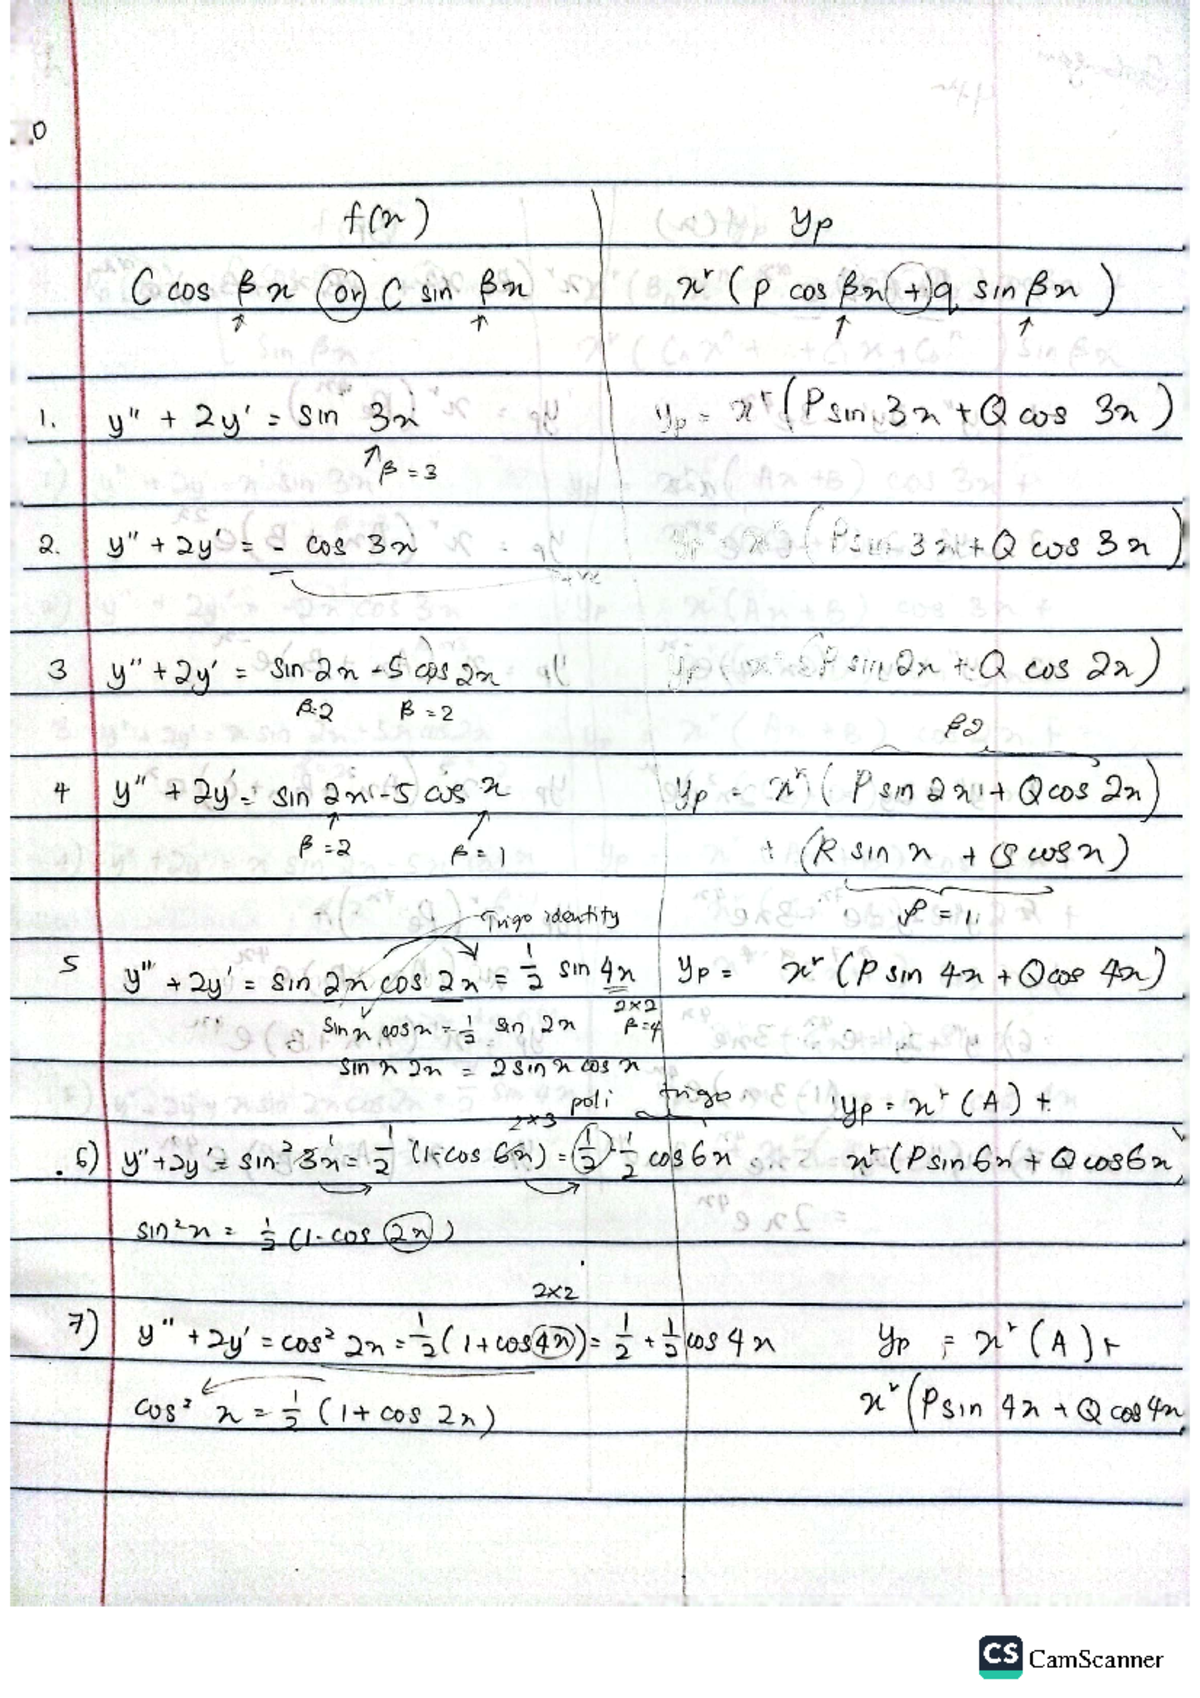 0
f(x) yp
C cos βx or C sin βx x^r ( p cos βx + q sin βx )
1. y'' + 2y' = sin 3x yp = x^r (P sin 3x + Q cos 3x)
β = 3
2. y'' + 2y' = - cos 3x yp = x^r (P sin 3x + Q cos 3x)
3 y'' + 2y' = sin 2x - 5 cos 2x yp = x^r (P sin 2x + Q cos 2x)
β=2 β = 2
β2
4 y'' + 2y' = sin 2x - 5 cos x yp = x^r (P sin 2x + Q cos 2x)
β = 2 β = 1 + (R sin x + S cos x)
Trigo identity β = 1
5 y'' + 2y' = sin 2x cos 2x = 1/2 sin 4x yp = x^r (P sin 4x + Q cos 4x)
2×2
sin x cos x = 1/2 sin 2x β=4
sin x 2x = 2 sin x cos x
poli trigo yp = x^r (A) +
2×3
6) y'' + 2y' = sin² 3x = 1/2 (1 - cos 6x) = 1/2 - 1/2 cos 6x x^r (P sin 6x + Q cos 6x)
sin² x = 1/2 (1 - cos 2x)
2×2
7) y'' + 2y' = cos² 2x = 1/2 (1 + cos 4x) = 1/2 + 1/2 cos 4x yp = x^r (A) +
cos² x = 1/2 (1 + cos 2x) x^r (P sin 4x + Q cos 4x
CS CamScanner